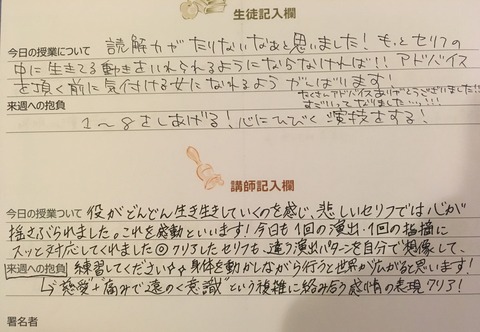 生徒記入欄
今日の授業について 読解力がたりないなぁと思いました！もっとセリフの
中に生きてる動きをいれられるようにならなければ！！アドバイス
を頂く前に気付ける女になれるようがんばります！
たくさんアドバイスありがとうございました!!
すごいってなりました…!!!
来週への抱負
1〜8をしあげる！心にひびく演技をする！
講師記入欄
今日の授業ついて 役がどんどん生き生きしていくのを感じ、悲しいセリフでは心が
揺さぶられました。これを感動といいます！今日も1回の演出・1回の指摘に
スッと対応してくれました◎クリアしたセリフも、違う演出パターンを自分で想像して、
来週への抱負 練習してください。身体を動かしながら行うと世界が広がると思います！
↳“慈愛”+“痛みで遠のく意識”という複雑に絡み合う感情の表現クリア！
署名者